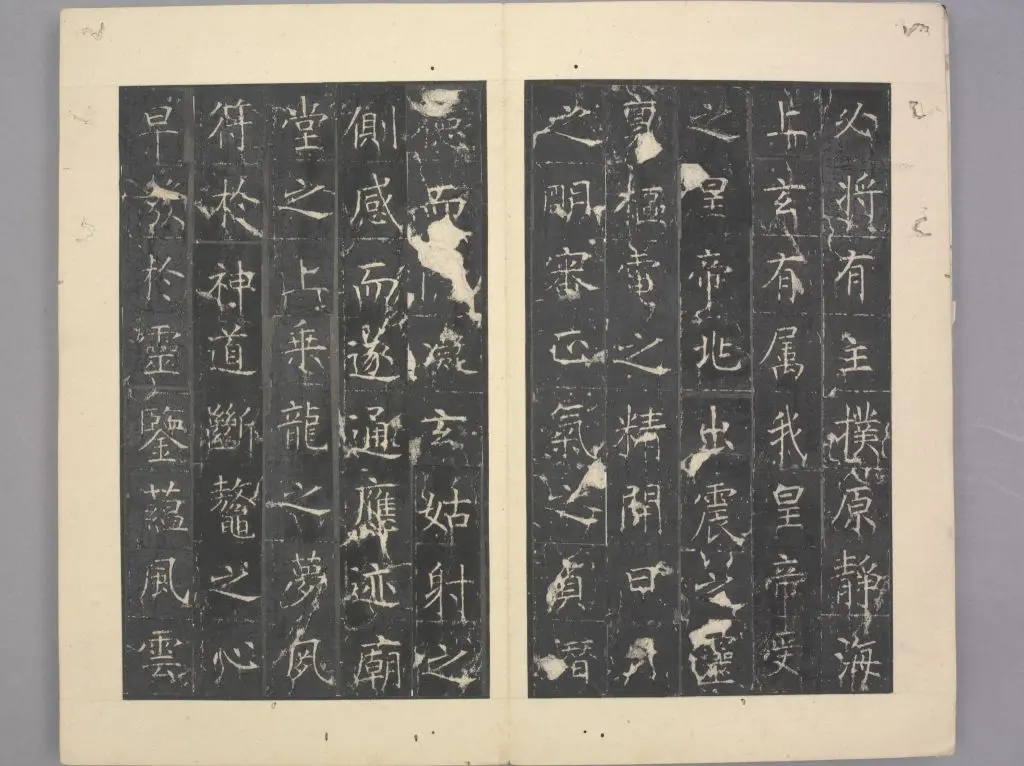 必将有主撲原靜海
上玄有属我皇帝受
之皇帝兆出震之運
樞電之精開日月
之明審正氣之貞
而凝玄姑射之
側感而遂通應迹廟
堂之上乗龍之夢夙
符於神道斷鼇之心
早於靈鑒蘊風雲